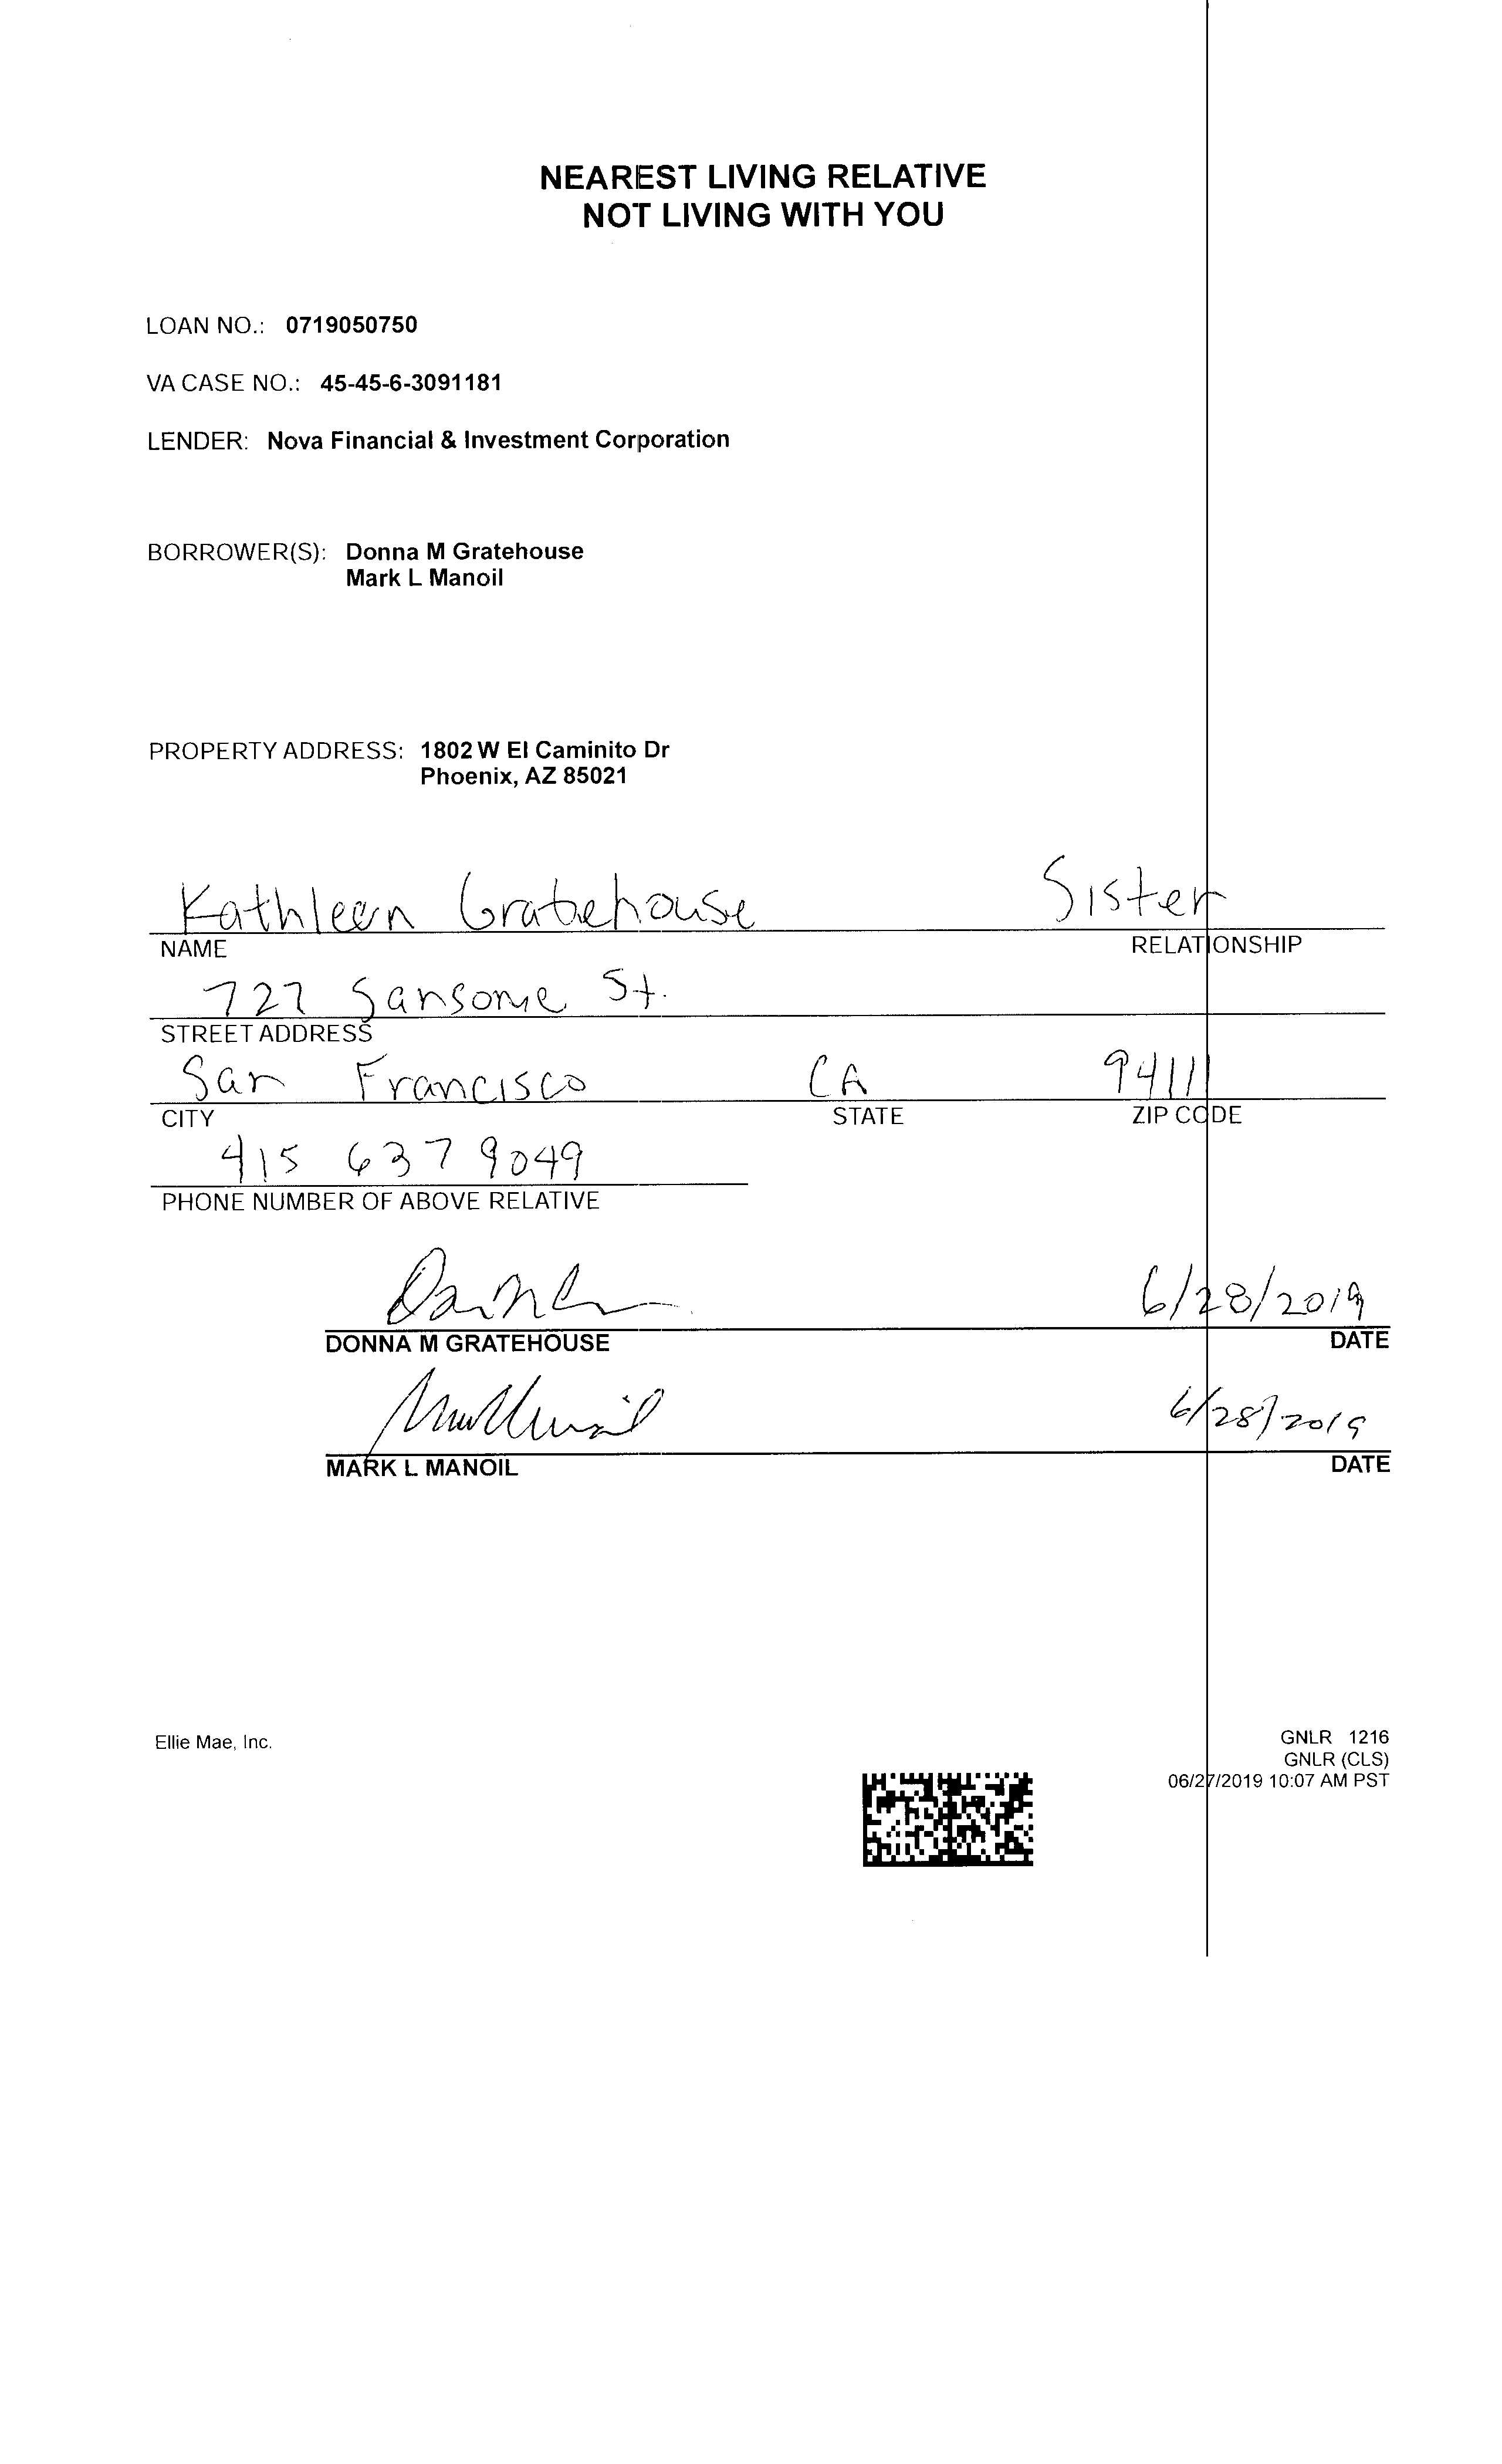 NEAREST LIVING RELATIVE
NOT LIVING WITH YOU
LOAN NO.: 0719050750
VA CASE NO.: 45-45-6-3091181
LENDER: Nova Financial & Investment Corporation
BORROWER(S): Donna M Gratehouse
Mark L Manoil
PROPERTY ADDRESS: 1802 W El Caminito Dr
Phoenix, AZ 85021
Kathleen Gratehouse Sister
NAME RELATIONSHIP
727 Sansome St.
STREET ADDRESS
San Francisco CA 94111
CITY STATE ZIP CODE
415 637 9049
PHONE NUMBER OF ABOVE RELATIVE
6/28/2019
DONNA M GRATEHOUSE DATE
6/28/2019
MARK L MANOIL DATE
Ellie Mae, Inc. GNLR 1216
GNLR (CLS)
06/27/2019 10:07 AM PST